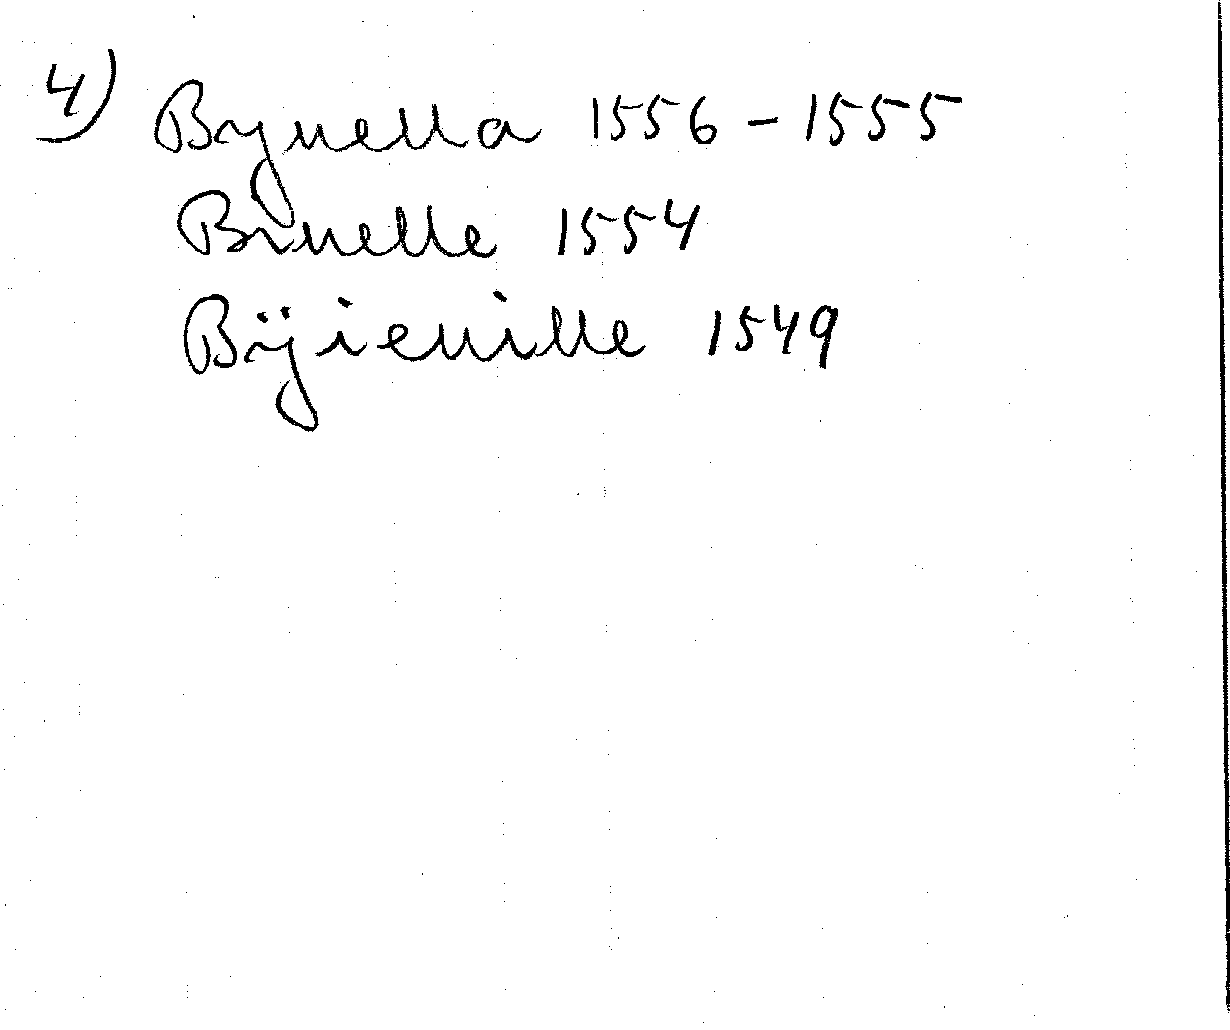 4) Bynella 1556 - 1555
Binelle 1554
Bÿienille 1549